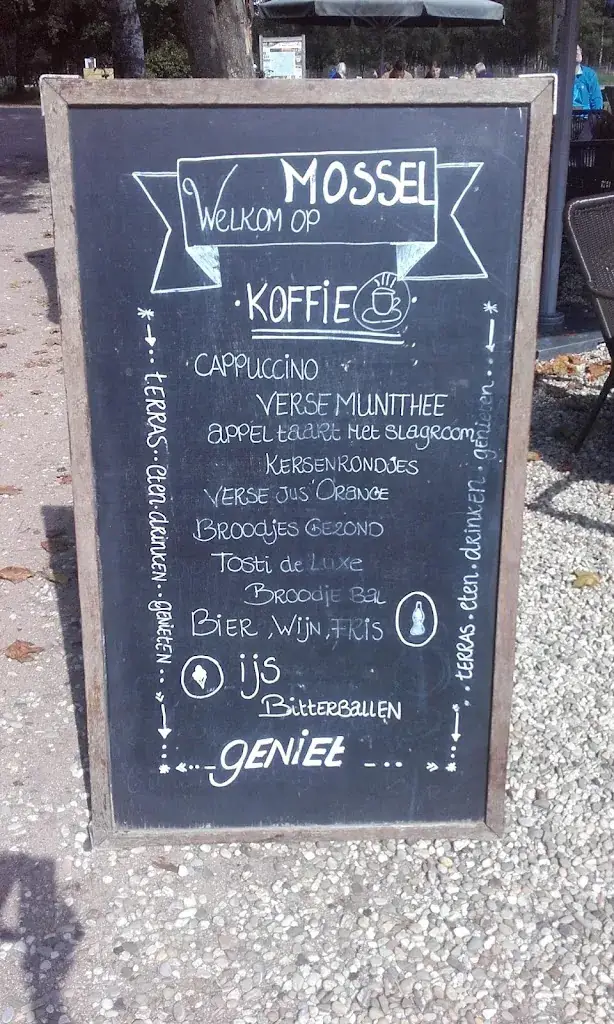 MOSSEL
WELKOM OP
KOFFIE
CAPPUCCINO
VERSE MUNTTHEE
APPELtaaRt Met slagroom
KERSENRONDJES
VERSE JUS'ORANGE
BROODJES GEZOND
Tosti de Luxe
BROODJE Bal
BIER, WIJN, FRIS
ijs
BitterBALLEN
GENIEt
TERRAS.. eten. drinken.. genieten
TERRAS. eten. drinken. genieten